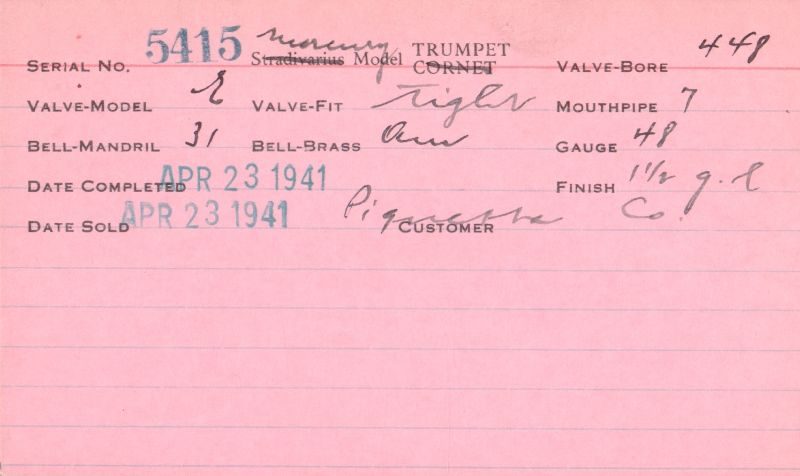 SERIAL No. 5415 Mercury Stradivarius Model TRUMPET CORNET VALVE-BORE 448
VALVE-MODEL E VALVE-FIT Tight MOUTHPIPE 7
BELL-MANDRIL 31 BELL-BRASS Am GAUGE 48
DATE COMPLETED APR 23 1941 FINISH 1 1/2 g. l
DATE SOLD APR 23 1941 CUSTOMER Co.